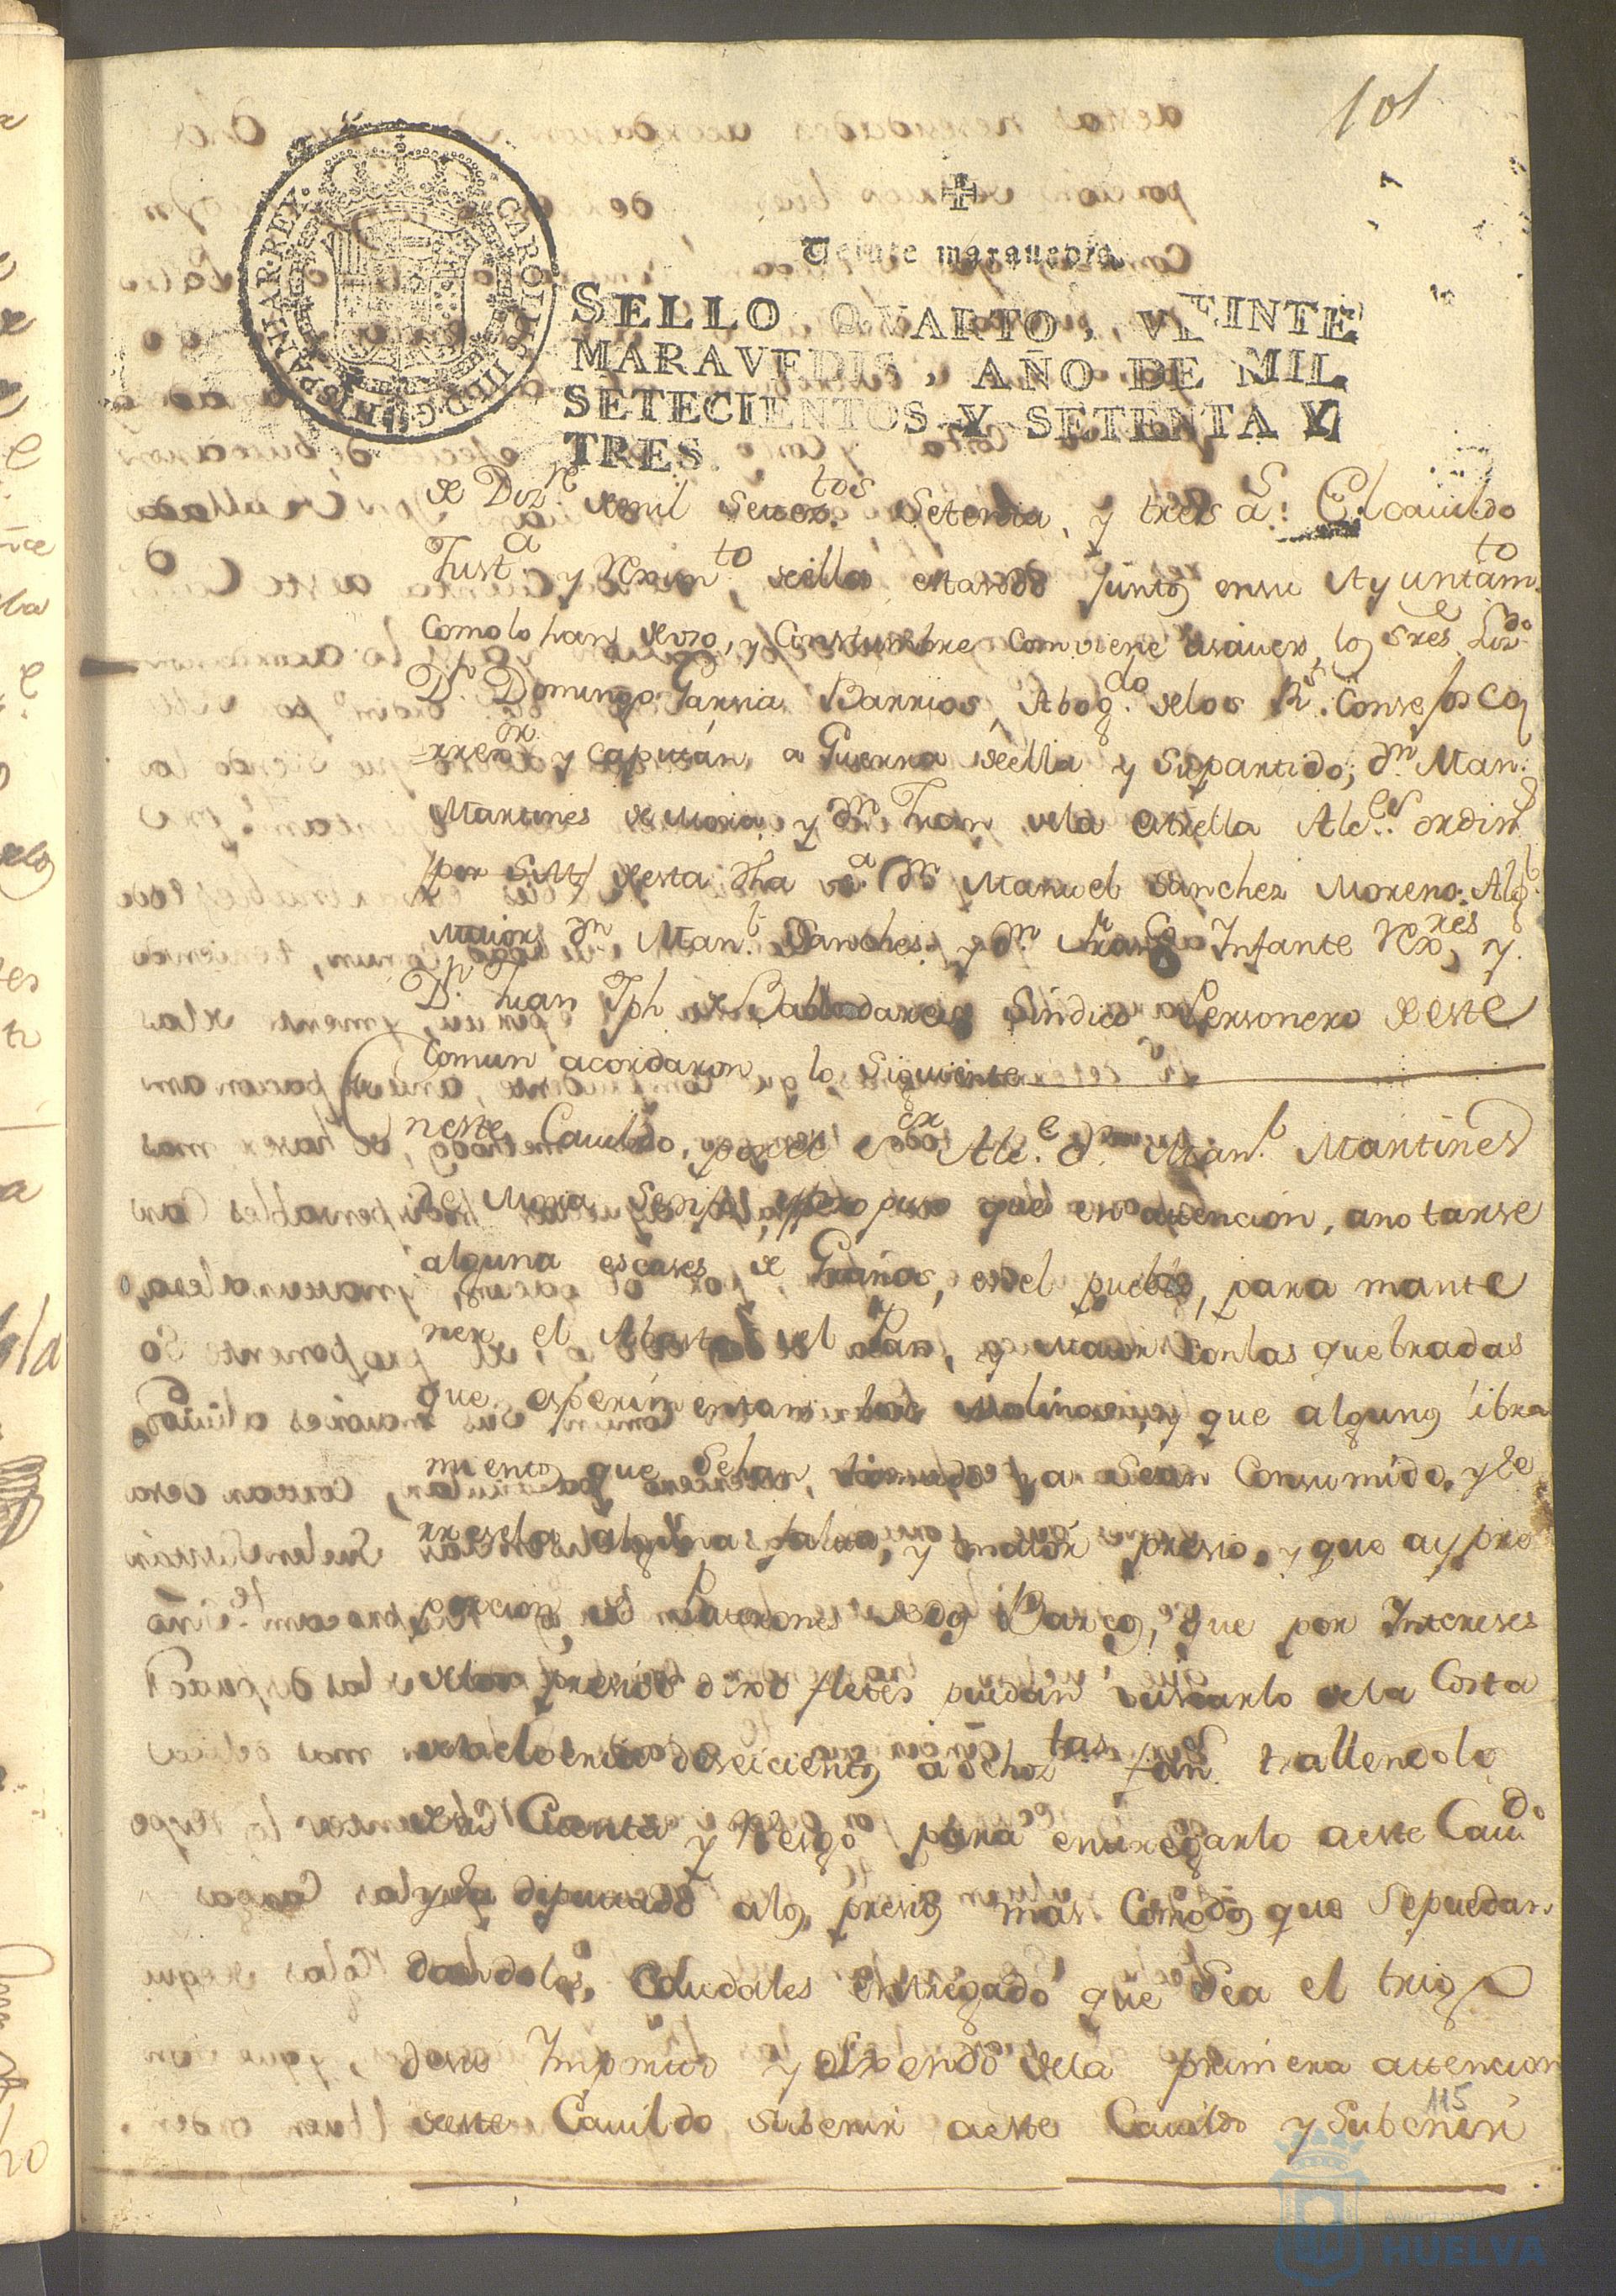 101
CAROLUS III D.G. HISPANIAR. REX.
Veinte maravedis.
SELLO QVARTO, VEINTE
MARAVEDIS, AÑO DE MIL
SETECIENTOS Y SETENTA Y
TRES.
de Diz.re de mil setez.tos Setenta, y tres a.s El cauildo
Just.a y Rexim.to de ella estando juntos en su Ayuntam.to
como lo han de uso, y Constumbre combiene asauer, los Sres Liz.do
D.n Domingo Garsia Barrios, Abog.do de los R.s Consejos Co
rrex.or y Capitán a Guerra de ella y su partido, d.n Man.l
Martines de Moria, y d.n Juan de la Estrella Alc.es ordin.s
por SM desta dha v.a d.n Manuel Sanchez Moreno Alg.l
Maior, d.n Man.l Sanches, y d.n Fran.co Infante Rex.res y
D.n Juan Jph de Balladares Síndico Personero de este
Comun acordaron lo Siguiente
neste Cauildo, por el Alc.e d.n Man.l Martines
de Moria Se propuso que en attencion, anotarse
alguna escases de Granos, en el pueblo, para mante
ner, el Abasto del Pan, y maior con las quebradas
que esperimentan los Molinos, y que algunos libra
mientos que Se han tomado ya Sean Consumido, y se
rresela alguna falta, y maior presio, y que ay pro
porcion de Patrones de dos Barcos, que por Intereses
de los presios dixo fletes puedan buscarlo de la Costa
de seiscientos a ochoz.tas fan.s trallendolo
de su Cuenta y Resgo para entregarlo a este Cauil.do
y sus diputado alos presios mas Comodos que Sepuedan
dandoles, Caudales entregado que Sea el trigo
deste Imponido y Siendo de la primera attencion
deste Cauildo Subenir aeste Cauildo y Subenir
115
HUELVA